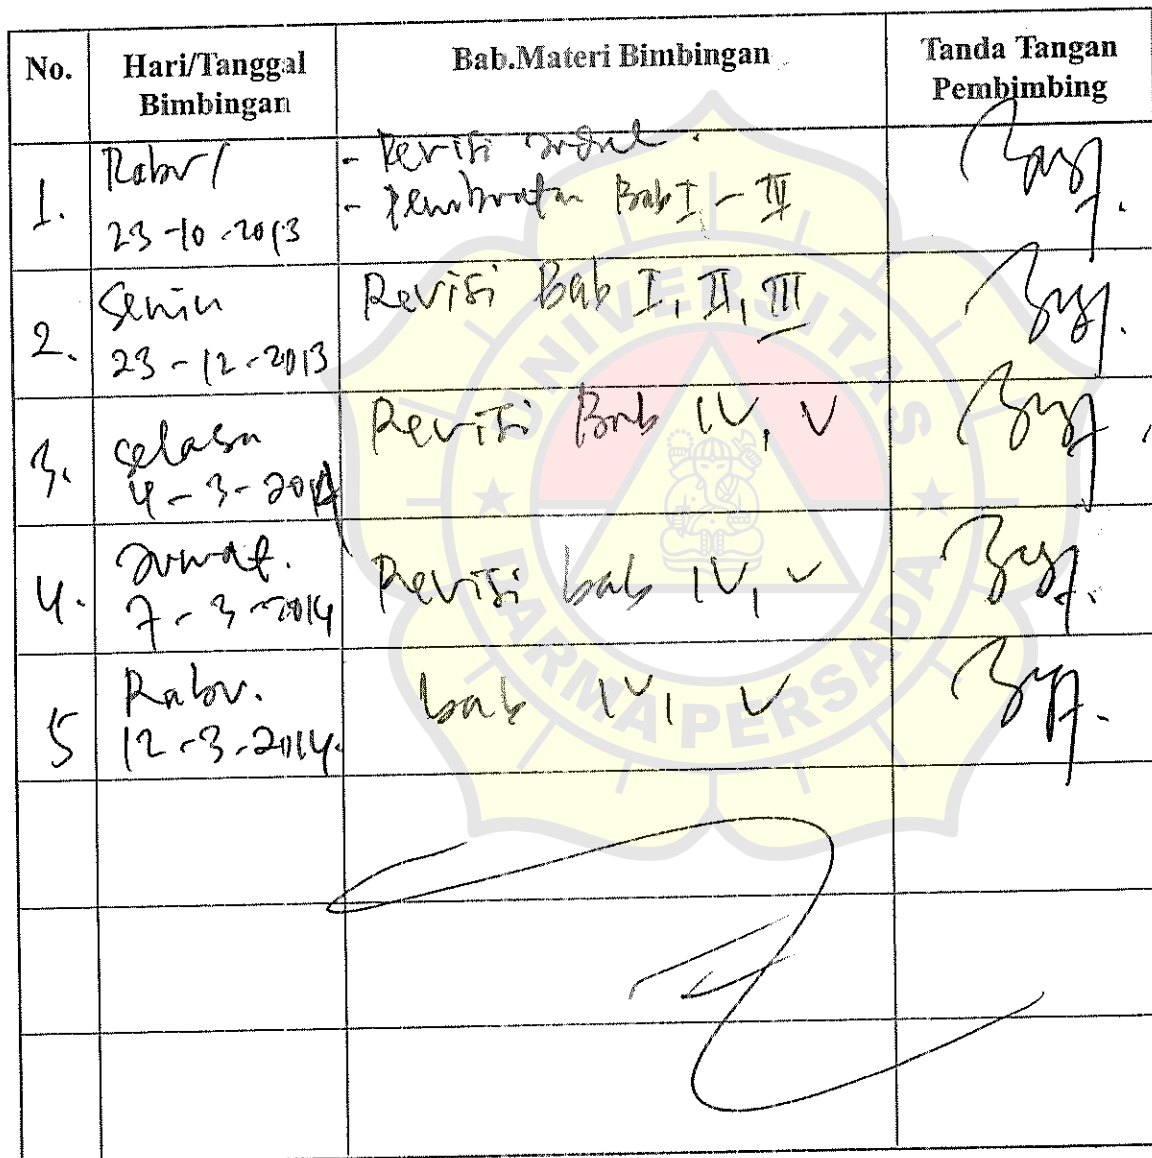 No.
Hari/Tanggal
Bimbingan
Bab.Materi Bimbingan
Tanda Tangan
Pembimbing
1.
Rabu/
23-10-2013
- Revisi judul.
- pembuatan Bab I - III
2.
Senin
23-12-2013
Revisi Bab I, II, III
3.
Selasa
4-3-2014
Revisi Bab IV, V
4.
Jumat.
7-3-2014
Revisi bab IV, V
5
Rabu.
12-3-2014.
bab IV, V
UNIVERSITAS
DARMA PERSADA